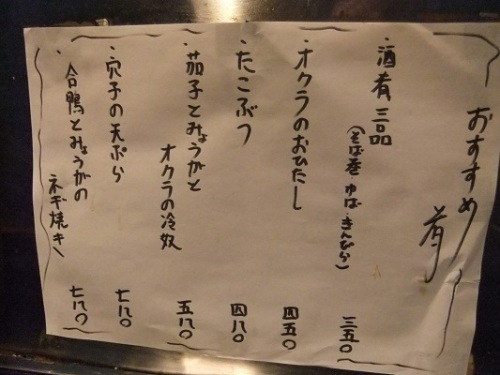 おすすめ
肴
・酒肴三品
(そば巻 ゆば きんぴら)
三五〇
・オクラのおひたし
四五〇
・たこぶつ
四八〇
・茄子とみょうがと
オクラの冷奴
五八〇
・穴子の天ぷら
七八〇
・合鴨とみょうがの
ネギ焼き
七八〇